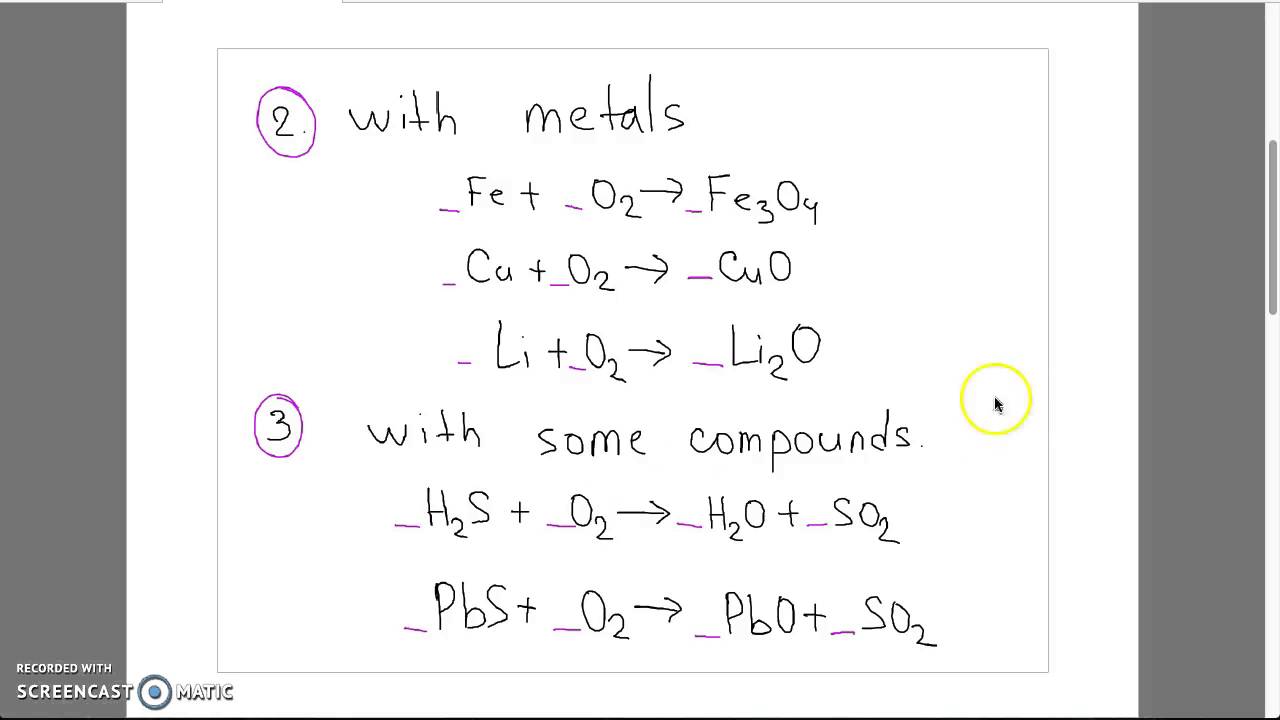 2. with metals
_Fe + _O₂ → _Fe₃O₄
_Cu + _O₂ → _CuO
_Li + _O₂ → _Li₂O
3 with some compounds.
_H₂S + _O₂ → _H₂O + _SO₂
_PbS + _O₂ → _PbO + _SO₂
RECORDED WITH
SCREENCAST MATIC